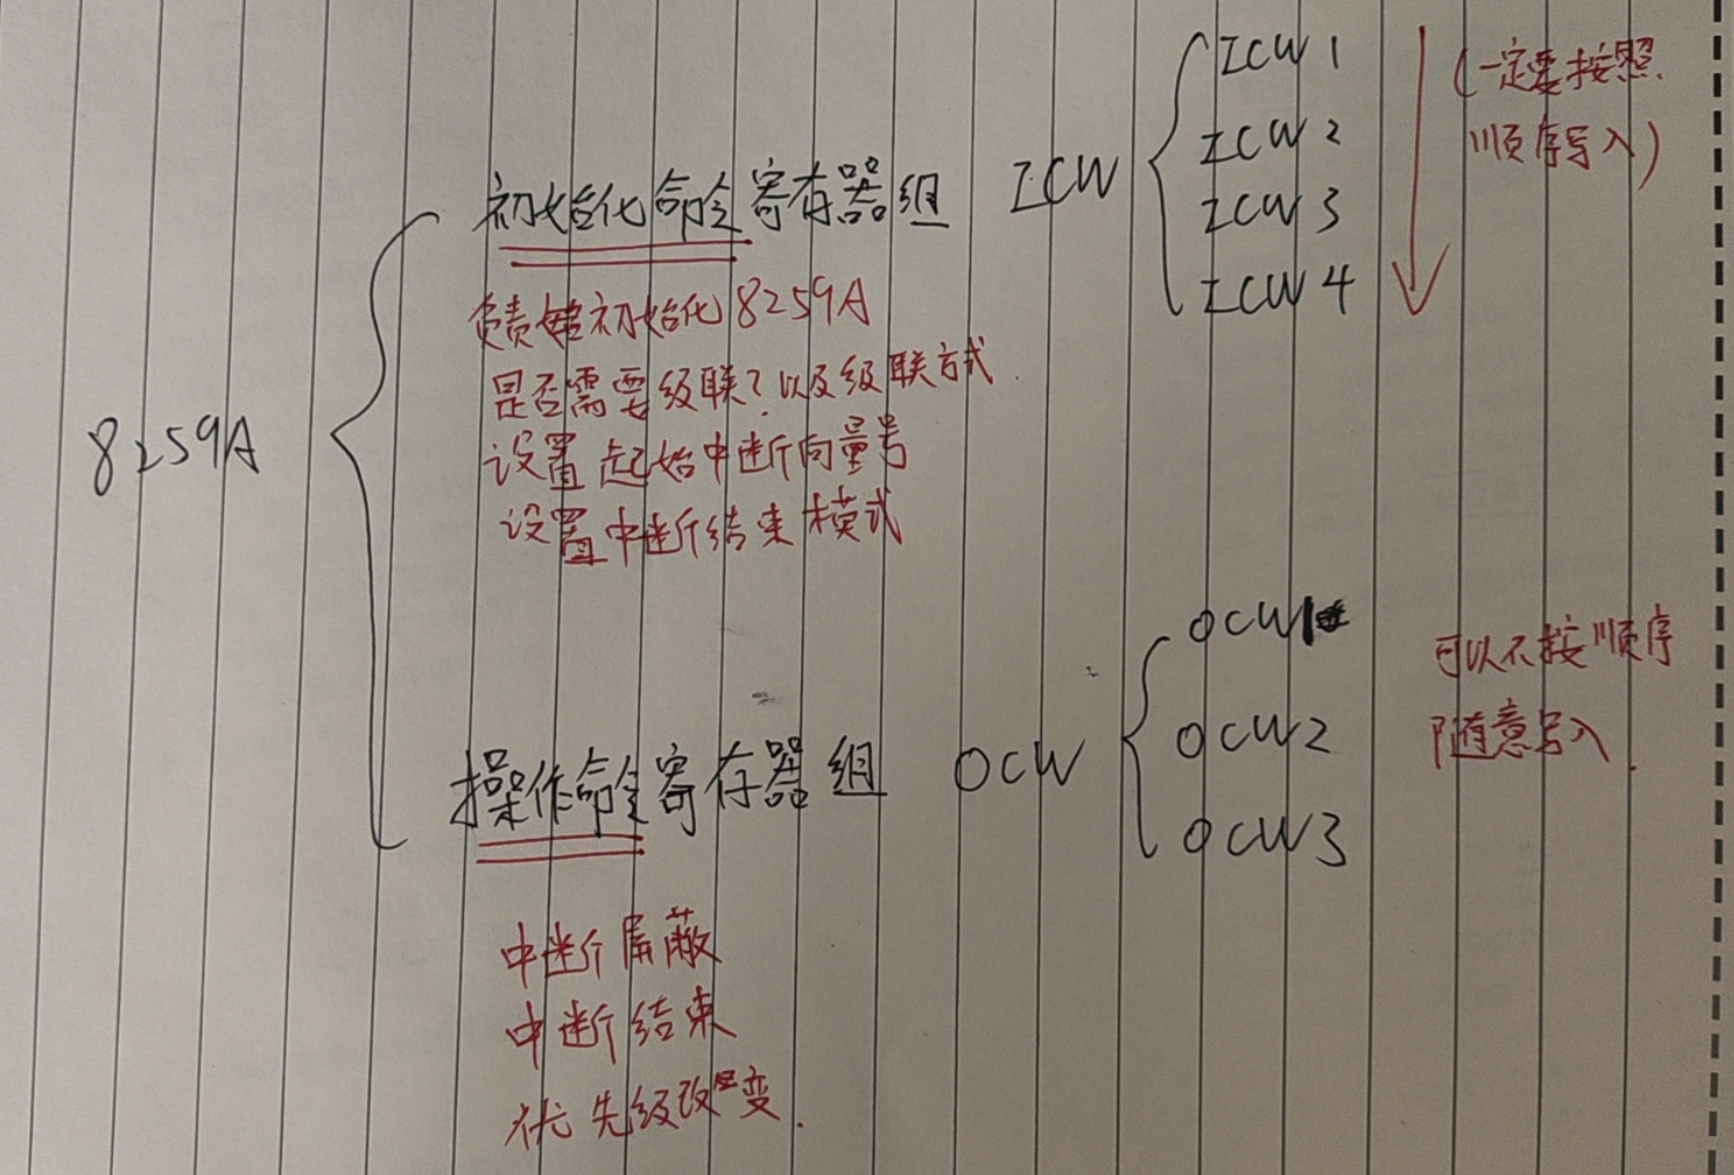 8259A
初始化命令寄存器组 ICW
ICW 1
ICW 2
ICW 3
ICW 4
(一定要按照
顺序写入)
负责初始化8259A
是否需要级联?以及级联方式.
设置起始中断向量号
设置中断结束模式
操作命令寄存器组 OCW
OCW1
OCW2
OCW3
可以不按顺序
随意写入.
中断屏蔽
中断结束
优先级改变.